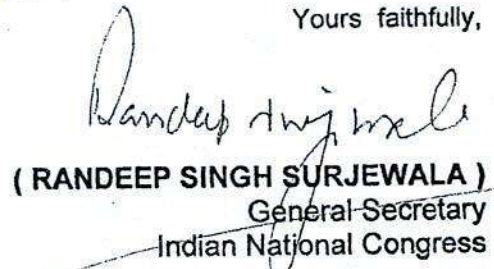 Yours faithfully,
Randeep Surjewala
( RANDEEP SINGH SURJEWALA )
General Secretary
Indian National Congress